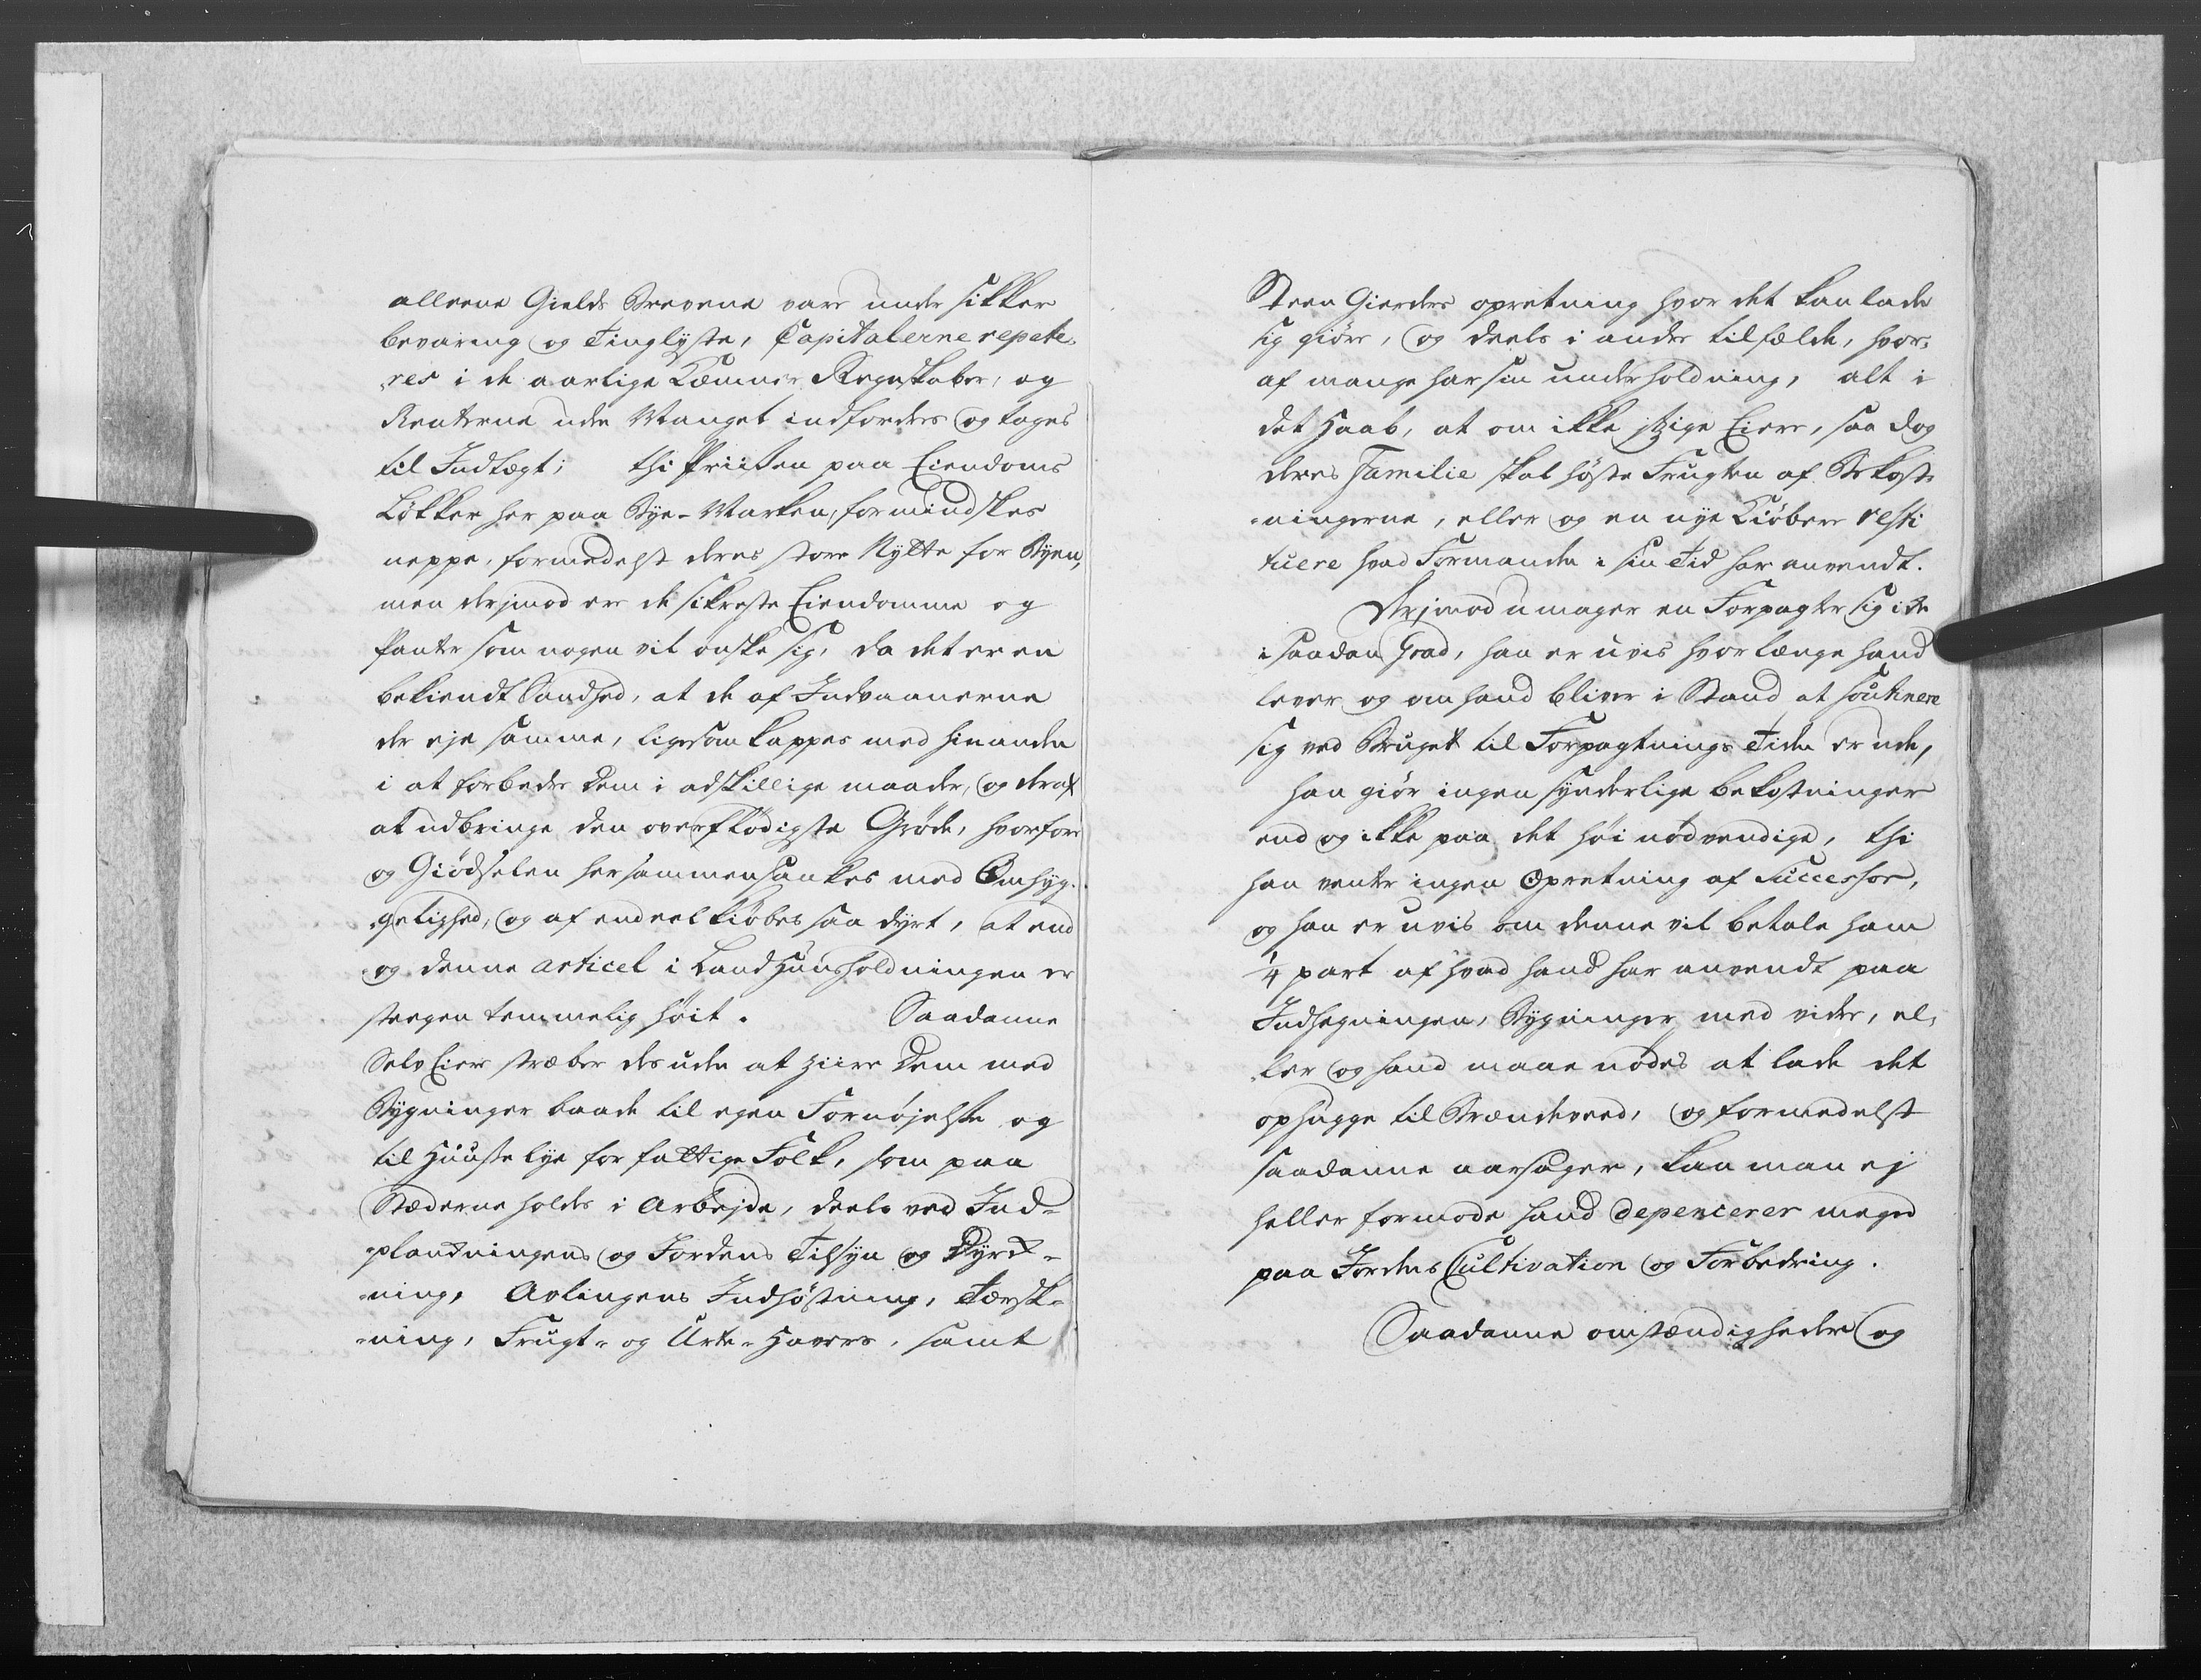 alleene Gields Brevene vare under sikker
bevaring og Tinglyste, Capitalerne repete-
res i de aarlige Kæmner Regnskaber, og
Renterne uden Manget indfordres og tages
til Indtægt; thi Priisen paa Eiendoms
Løkker her paa Bye-Marken, formindskes
neppe, formedelst deres store Nytte for Byen,
men derjmod er de sikreste Eiendomme og
Pante som nogen vil onske sig, da det er en
bekiendt Sandhed, at de af Indvaanerne
der eje samme, ligesom kappes med hinanden
i at forbedre dem i adskillige maader, og deraf
at udbringe den overflødigste Grøde, hvorfore
og Giødselen her sammensankes med Omhyg-
gelighed, og af endeel kiøbes saa dyrt, at end
og denne articel i Landhuusholdningen er
stegen temmelig høit. Saadanne
SelvEiere stræber desuden at ziire dem med
Bygninger baade til egen Fornøjelse og
til Huuselye for fattige Folk, som paa
Stæderne holdes i Arbejde, deels ved Ind-
plantningens og Jordens Tilsyn og Dyrk-
ning, Avlingens Indhøstning, Tærsk-
ning, Frugt- og Urte-Havers, samt
Steen Gierders opretning hvor det kan lade
sig giøre, og deels i andre tilfælde, hvor-
af mange har sin underholdning, alt i
det Haab, at om ikke jtzige Eiere, saa dog
deres Familie skal høste Frugten af Bekost-
ningerne, eller og en nye Kiøbere resti
tuere hvad Formanden i sin Tid har anvendt.
Derjmod umager en Forpagter sig ikke
i saadan Grad, han er uvis hvor længe hand
lever og om hand bliver i Stand at soutinere
sig ved Bruget til Forpagtnings Tiden er ude,
han giør ingen synderlige bekostninger
end og ikke paa det høi nødvendige, thi
han venter ingen Opretning af Successor,
og han er uvis om denne vil betale ham
1/4 part af hvad hand har anvendt paa
Indhegningen, Bygninger med videre, el-
ler og hand maae nødes at lade det
ophugge til Brændeveed, og formedelst
saadanne aarsager, kan man ej
heller formode hand depencerer meged
paa Jordens Cultivation og Forbedring.
Saadanne omstændigheder og